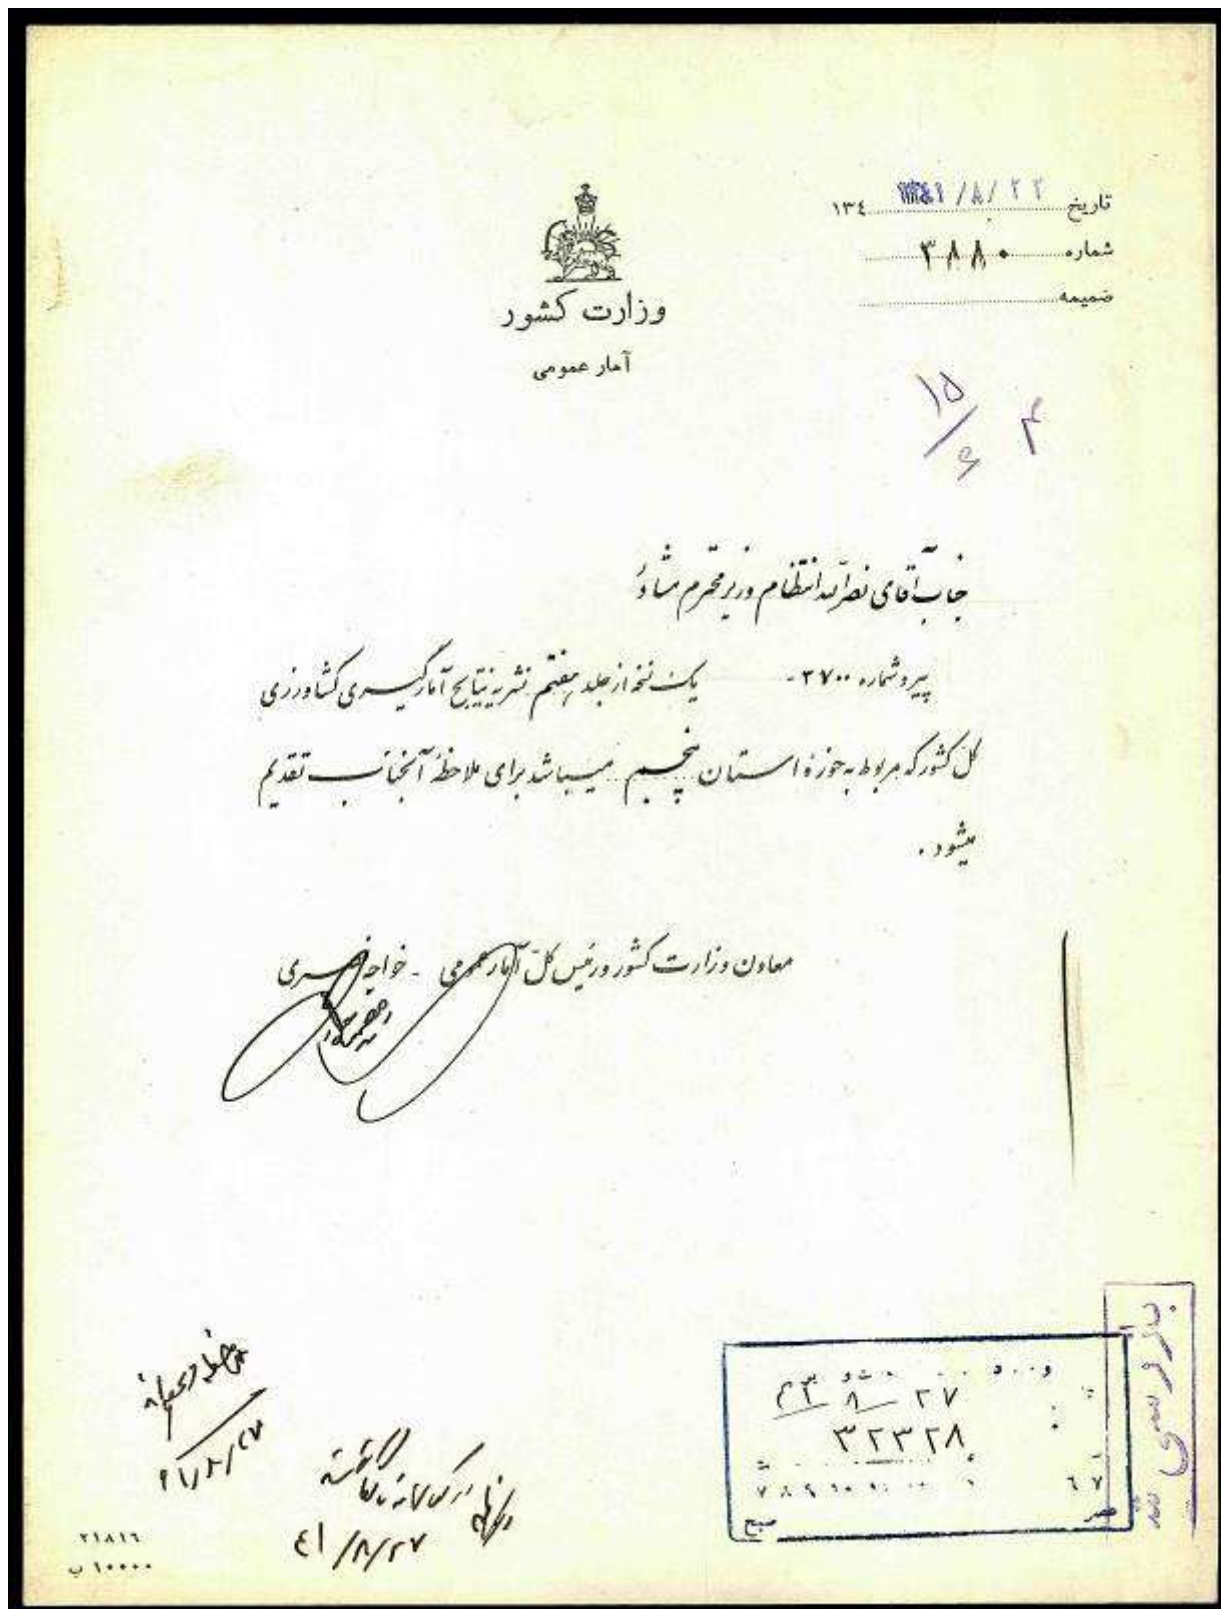 تاریخ ۱۳۴۱/۸/۲۲ ۱۳۴
شماره ۳۸۸۰
ضمیمه
وزارت کشور
آمار عمومی
۱۵/۶ ۴
جناب آقای نصرالله انتظام وزیر محترم مشاور
پیرو شماره ۳۷۰۰- یک نسخه از جلد هفتم نشریه نتایج آمارگیری کشاورزی
کل کشور که مربوط به حوزه استان پنجم میباشد برای ملاحظه آنجناب تقدیم
میشود .
معاون وزارت کشور و رئیس کل آمار عمومی - خواجه نصیری
بازرسی شد
۴۱ ۸ ۲۷
۳۲۳۲۸
صبح عصر
۴۱/۸/۲۷
۴۱/۸/۲۷
۲۱۸۱۶
۱۰۰۰۰ ب